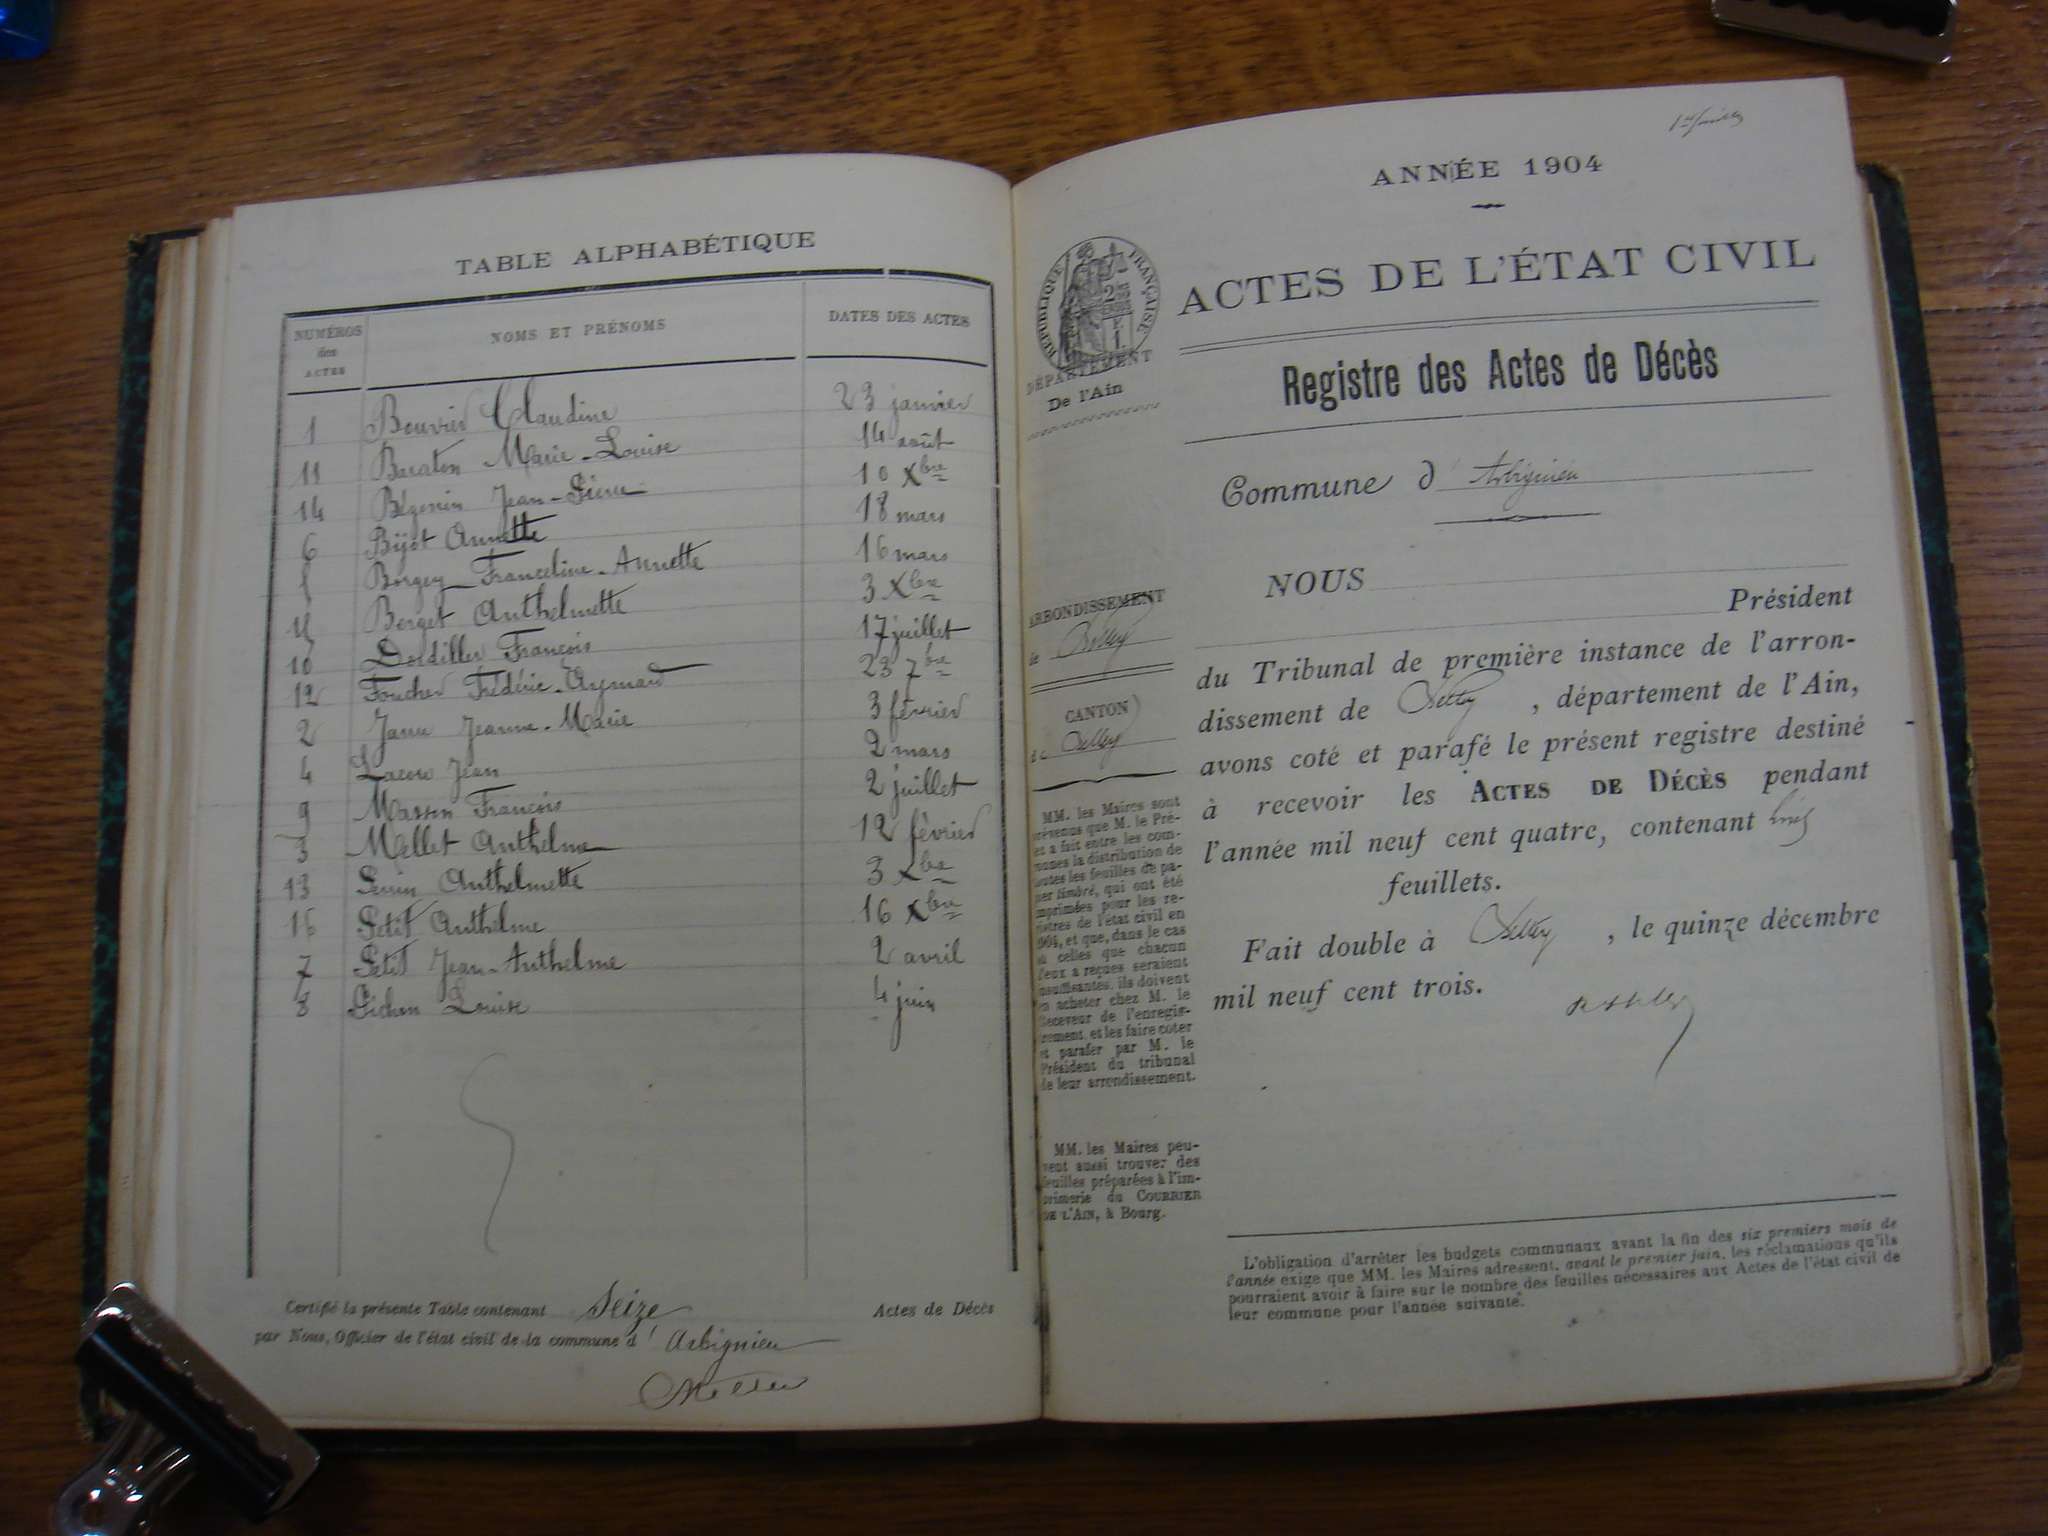 TABLE ALPHABÉTIQUE
NUMÉROS des ACTES NOMS ET PRÉNOMS DATES DES ACTES
1 Bouvier Claudine 23 janvier
11 Buraton Marie-Louise 14 août
14 Jean-Pierre 10 Xbre
6 Bijot Annette 18 mars
Borgey Franceline-Annette 16 mars
15 Berget Anthelmette 3 Xbre
10 Dordillet François 17 juillet
12 Foucher Frédéric-Aymard 23 7bre
2 Jeanne-Marie 3 février
4 Jean 2 mars
9 Masson François 2 juillet
3 Mellet Anthelme 12 février
13 Anthelmette 3 Xbre
16 Petit Anthelme 16 Xbre
7 Petit Jean-Anthelme 2 avril
8 Pichon Louise 4 juin
Certifié la présente Table contenant Seize Actes de Décès
par Nous, Officier de l'état civil de la commune d' Arbignieu
ANNÉE 1904
ACTES DE L'ÉTAT CIVIL
RÉPUBLIQUE FRANÇAISE
DÉPARTEMENT
De l'Ain
Registre des Actes de Décès
Commune d' Arbignieu
ARRONDISSEMENT
de Belley
CANTON
de Belley
NOUS
Président
du Tribunal de première instance de l'arron-
dissement de Belley , département de l'Ain,
avons coté et parafé le présent registre destiné
à recevoir les ACTES DE DÉCÈS pendant
l'année mil neuf cent quatre, contenant
feuillets.
Fait double à Belley , le quinze décembre
mil neuf cent trois.
MM. les Maires sont
prévenus que M. le Pré-
et a fait entre les com-
munes la distribution de
toutes les feuilles de pa-
pier timbré, qui ont été
imprimées pour les re-
gistres de l'état civil en
1904, et que, dans le cas
où celles que chacun
d'eux a reçues seraient
insuffisantes, ils doivent
en acheter chez M. le
Receveur de l'enregis-
trement, et les faire coter
et parafer par M. le
Président du tribunal
de leur arrondissement.
MM. les Maires peu-
vent aussi trouver des
feuilles préparées à l'im-
primerie du COURRIER
DE L'AIN, à Bourg.
L'obligation d'arrêter les budgets communaux avant la fin des six premiers mois de
l'année exige que MM. les Maires adressent, avant le premier juin, les réclamations qu'ils
pourraient avoir à faire sur le nombre des feuilles nécessaires aux Actes de l'état civil de
leur commune pour l'année suivante.